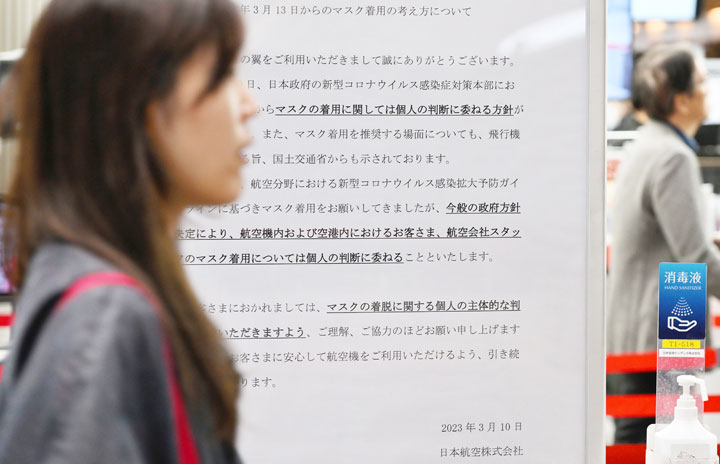 年3月13日からのマスク着用の考え方について
の翼をご利用いただきまして誠にありがとうございます。
日、日本政府の新型コロナウイルス感染症対策本部にお
からマスクの着用に関しては個人の判断に委ねる方針が
また、マスク着用を推奨する場面についても、飛行機
る旨、国土交通省からも示されております。
、航空分野における新型コロナウイルス感染拡大予防ガイ
インに基づきマスク着用をお願いしてきましたが、今般の政府方針
決定により、航空機内および空港内におけるお客さま、航空会社スタッ
のマスク着用については個人の判断に委ねることといたします。
客さまにおかれましては、マスクの着脱に関する個人の主体的な判
いただきますよう、ご理解、ご協力のほどお願い申し上げます
お客さまに安心して航空機をご利用いただけるよう、引き続
ります。
2023年3月10日
日本航空株式会社
消毒液
HAND SANITIZER
T1-S18